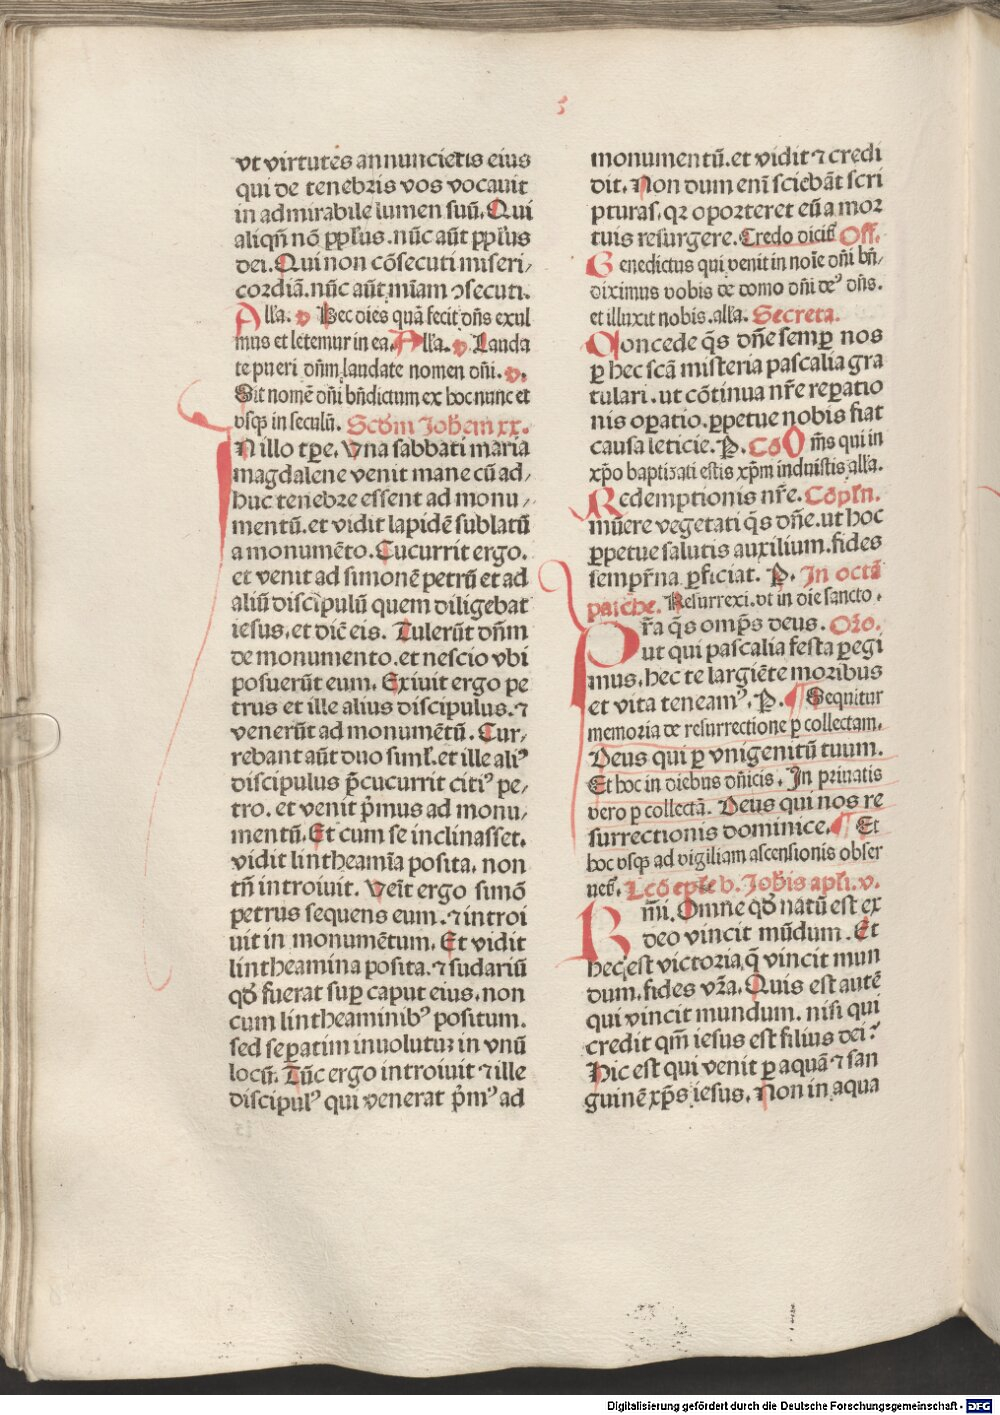 5
vt virtutes annuncietis eius
qui de tenebris vos vocauit
in admirabile lumen suū. Qui
aliqn̄ nō ppl̄us. nūc aūt ppl̄us
dei. Qui non cōsecuti miseri/
cordiā. nūc aūt mīam ꝯsecuti.
All̄a. v Hec dies quā fecit dn̄s exul
mus et letemur in ea. All̄a. v. Lauda
te pueri dn̄m, laudate nomen dn̄i. v.
Sit nomē dn̄i bn̄dictum ex hoc nunc et
vsqꝫ in seculū. Scd̄m Joh̄em xx.
IN illo tp̄e. Vna sabbati maria
magdalene venit mane cū ad/
huc tenebre essent ad monu/
mentū. et vidit lapidē sublatū
a monumēto. Cucurrit ergo.
et venit ad simonē petrū et ad
aliū discipulū quem diligebat
iesus. et dic̄ eis. Tulerūt dn̄m
de monumento. et nescio vbi
posuerūt eum. Exiuit ergo pe
trus et ille alius discipulus. ⁊
venerūt ad monumētū. Cur/
rebant aūt duo siml̄. et ille aliꝰ
discipulus p̄cucurrit citiꝰ pe/
tro. et venit p̄mus ad monu/
mentū. Et cum se inclinasset.
vidit lintheamīa posita. non
tn̄ introiuit. Veīt ergo simō
petrus sequens eum. ⁊ introi
uit in monumētum. Et vidit
lintheamina posita. ⁊ sudariū
qd̄ fuerat suꝑ caput eius. non
cum lintheaminibꝰ positum.
sed seꝑatim inuolutuꝫ in vnū
locū. Tūc ergo introiuit ⁊ ille
discipulꝰ qui venerat p̄mꝰ ad
monumentū. et vidit ⁊ credi
dit. Non dum enī sciebāt scri
pturas. qꝛ oporteret eū a mor
tuis resurgere. Credo dicit̄ Off.
Benedictus qui venit in noīe dn̄i bn̄/
diximus vobis de domo dn̄i deꝰ dn̄s.
et illuxit nobis. all̄a. Secreta.
Concede q̄s dn̄e semꝑ nos
ꝑ hec scā misteria pascalia gra
tulari. ut cōtinua nr̄e reꝑatio
nis oꝑatio. ꝑpetue nobis fiat
causa leticie. P. Cō Om̄s qui in
xp̄o baptizati estis xp̄m induistis all̄a.
Redemptionis nr̄e. Cōpln̄.
mūere vegetati q̄s dn̄e. ut hoc
ꝑpetue salutis auxilium. fides
sempr̄na ꝑficiat. P. In octa
pasche. Resurrexi. vt in die sancto.
Pr̄a q̄s omp̄s deus. Or̄o.
ut qui pascalia festa ꝑegi
mus. hec te largiēte moribus
et vita teneamꝰ. P. ¶ Sequitur
memoria de resurrectione ꝑ collectam.
Deus qui ꝑ vnigenitū tuum.
Et hoc in diebus dn̄icis. In priuatis
vero ꝑ collectā. Deus qui nos re
surrectionis dominice. ¶ Et
hoc vsqꝫ ad vigiliam ascensionis obser
uet̄. Lcō epl̄e b. Joh̄is apl̄i. v.
Km̄i. Omne qd̄ natū est ex
deo vincit mūdum. Et
hec est victoria q̄ vincit mun
dum. fides vr̄a. Quis est autē
qui vincit mundum. nisi qui
credit qm̄ iesus est filius dei?
Hic est qui venit ꝑ aquā ⁊ san
guinē xp̄s iesus. Non in aqua
Digitalisierung gefördert durch die Deutsche Forschungsgemeinschaft - DFG